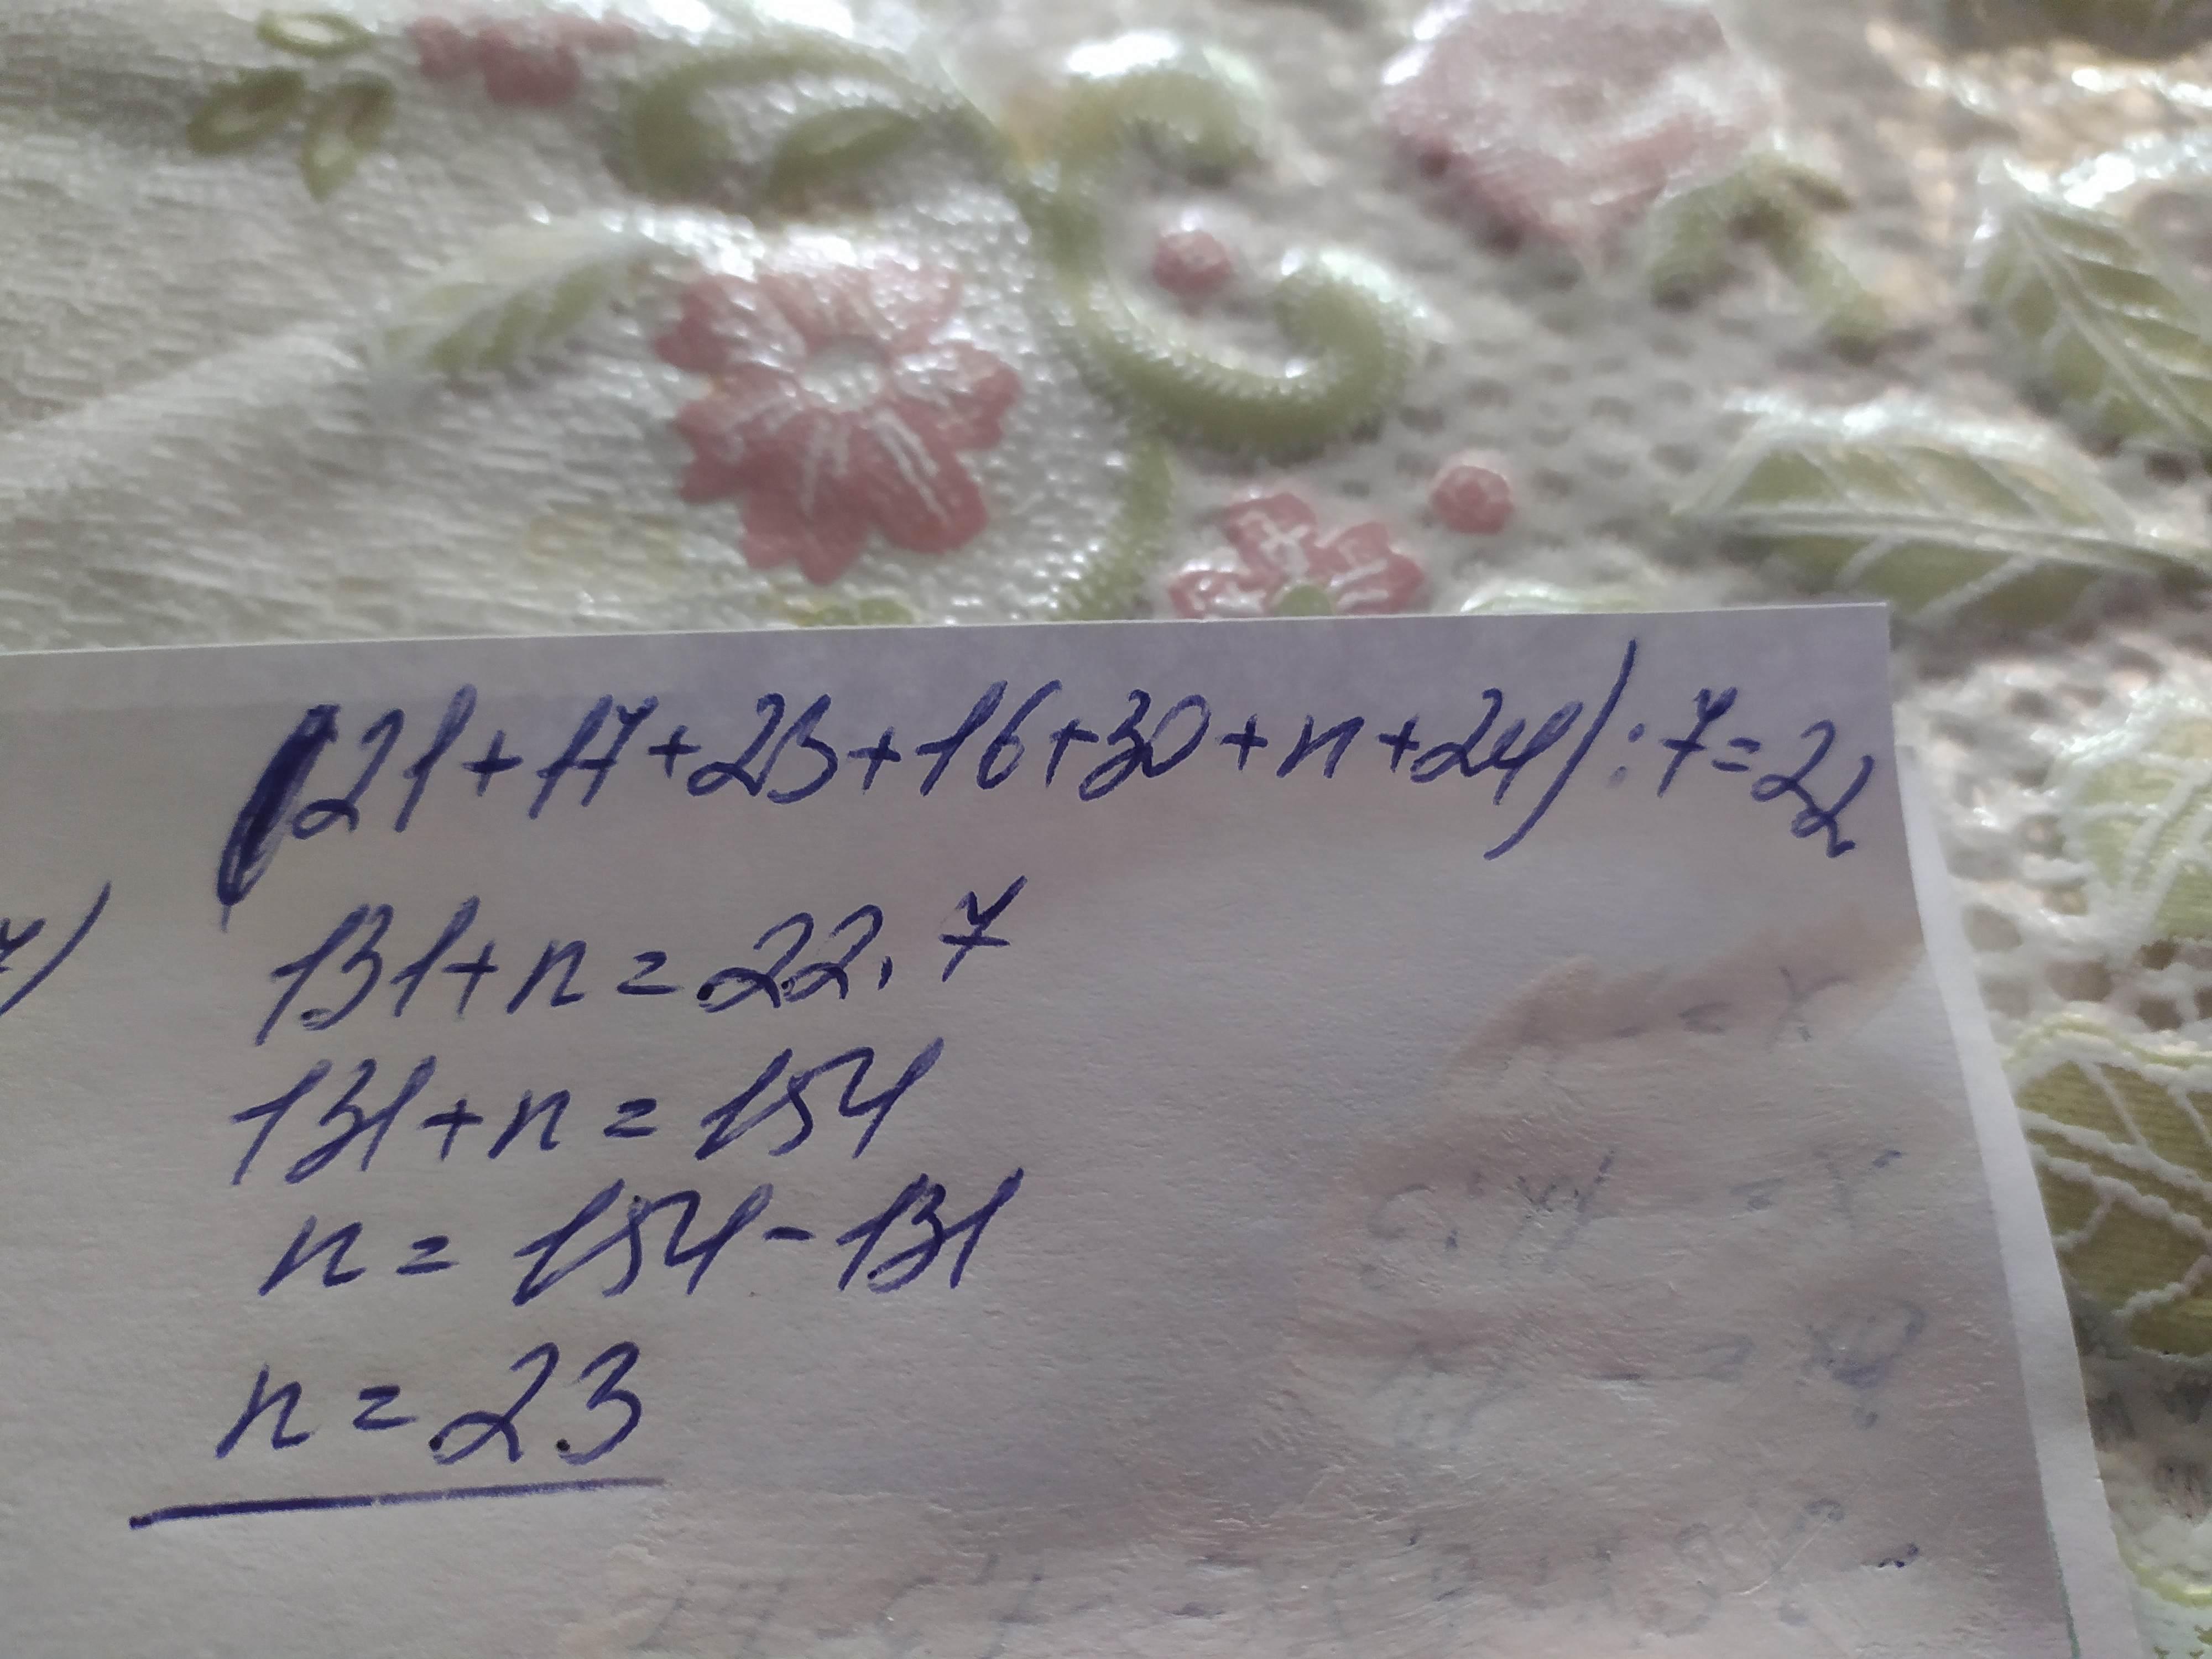 (21+17+23+16+30+n+24):7=22
7)
131+n=22.7
131+n=154
n=154-131
n=23